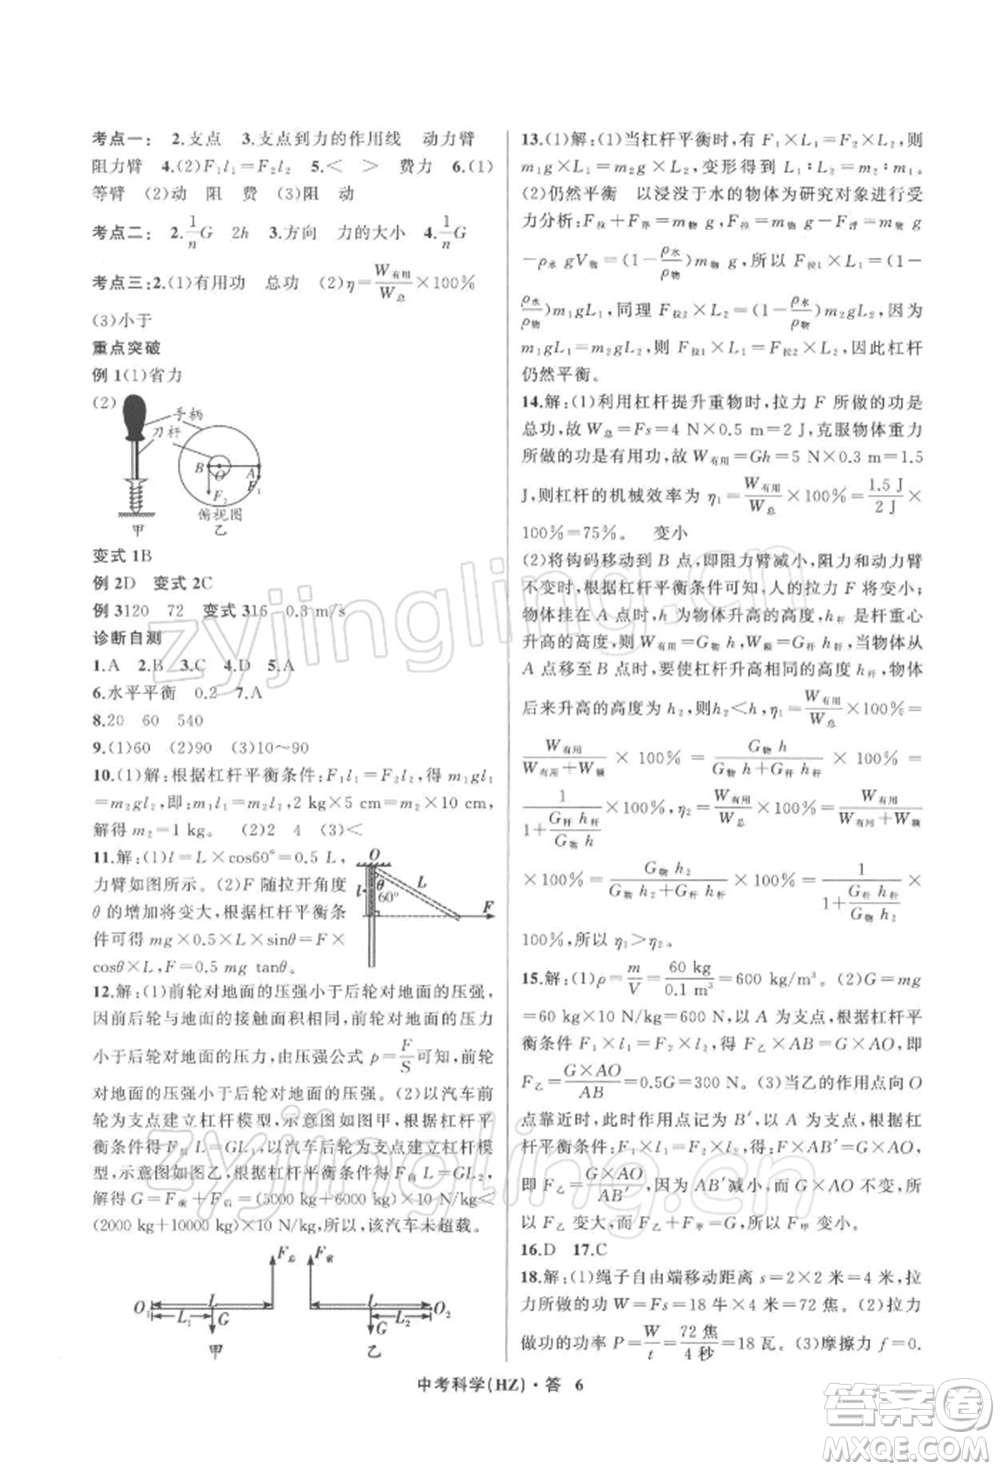 考点一: 2.支点 3.支点到力的作用线 动力臂
阻力臂 4.(2)F₁l₁=F₂l₂ 5.< > 费力 6.(1)
等臂 (2)动 阻 费 (3)阻 动
考点二: 2.1/n G 2h 3.方向 力的大小 4.1/n G
考点三: 2.(1)有用功 总功 (2)η=W有用/W总×100%
(3)小于
重点突破
例 1(1)省力
(2)
手柄
刀杆
B O A
F₂ F₁
俯视图
甲 乙
变式 1B
例 2D 变式 2C
例 3120 72 变式 316 0.3 m/s
诊断自测
1.A 2.B 3.C 4.D 5.A
6.水平平衡 0.2 7.A
8.20 60 540
9.(1)60 (2)90 (3)10～90
10.(1)解:根据杠杆平衡条件:F₁l₁=F₂l₂,得 m₁gl₁
=m₂gl₂,即:m₁l₁=m₂l₂,2 kg×5 cm=m₂×10 cm,
解得 m₂=1 kg。 (2)2 4 (3)<
11.解:(1)l=L×cos60°=0.5 L,
力臂如图所示。(2)F 随拉开角度
θ 的增加将变大,根据杠杆平衡条
件可得 mg×0.5×L×sinθ=F×
cosθ×L,F=0.5 mg tanθ。
O
l θ L
60°
F
12.解:(1)前轮对地面的压强小于后轮对地面的压强,
因前后轮与地面的接触面积相同,前轮对地面的压力
小于后轮对地面的压力,由压强公式 p=F/S可知,前轮
对地面的压强小于后轮对地面的压强。(2)以汽车前轮
为支点建立杠杆模型,示意图如图甲,根据杠杆平
衡条件得 F后L=GL₁,以汽车后轮为支点建立杠杆模
型,示意图如图乙,根据杠杆平衡条件得 F前L=GL₂,
解得 G=F前+F后=(5000 kg+6000 kg)×10 N/kg<
(2000 kg+10000 kg)×10 N/kg,所以,该汽车未超载。
F后 F前
O₁ L L O₂
L₁ G G L₂
甲 乙
13.(1)解:(1)当杠杆平衡时,有 F₁×L₁=F₂×L₂,则
m₁g×L₁=m₂g×L₂,变形得到 L₁:L₂=m₂:m₁。
(2)仍然平衡 以浸没于水的物体为研究对象进行受
力分析:F拉+F浮=m物 g,所以 F拉=m物 g-F浮=m物 g
-ρ水 gV物=(1-ρ水/ρ物)m物 g,所以 F拉1×L₁=(1-
ρ水/ρ物)m₁gL₁,同理 F拉2×L₂=(1-ρ水/ρ物)m₂gL₂,因为
m₁gL₁=m₂gL₂,则 F拉1×L₁=F拉2×L₂,因此杠杆
仍然平衡。
14.解:(1)利用杠杆提升重物时,拉力 F 所做的功是
总功,故 W总=Fs=4 N×0.5 m=2 J,克服物体重力
所做的功是有用功,故 W有用=Gh=5 N×0.3 m=1.5
J,则杠杆的机械效率为 η₁=W有用/W总×100%=1.5 J/2 J×
100%=75%。 变小
(2)将钩码移动到 B 点,即阻力臂减小,阻力和动力臂
不变时,根据杠杆平衡条件可知,人的拉力 F 将变小;
物体挂在 A 点时,h 为物体升高的高度,h杆是杆重心
升高的高度,所以 W有用=G物 h,W额=G杆 h杆,物体从
A 点移至 B 点,还要使杠杆升高相同的高度 h杆,物体
后来升高的高度为 h₂,则 h₂<h,η₁=W有用/W总×100%=
W有用/(W有用+W额)×100%=G物 h/(G物 h+G杆 h杆)×100%=
1/(1+G杆 h杆/G物 h)×100%,η₂=W有用/W总×100%=W有用/(W有用+W额)
×100%=G物 h₂/(G物 h₂+G杆 h杆)×100%=1/(1+G杆 h杆/G物 h₂)×
100%,所以 η₁>η₂。
15.解:(1)ρ=m/V=60 kg/0.1 m³=600 kg/m³。(2)G=mg
=60 kg×10 N/kg=600 N,以 A 为支点,根据杠杆平
衡条件 F₁×l₁=F₂×l₂,得 F乙×AB=G×AO,
F乙=G×AO/AB=0.5G=300 N。(3)当乙的作用点向 O
点靠近时,此时作用点记为 B′,以 A 为支点,根据杠
杆平衡条件:F₁×l₁=F₂×l₂得:F乙×AB′=G×AO,
即 F乙=G×AO/AB′,因为 AB′减小,而 G×AO 不变,所
以 F乙 变大;而 F甲+F乙=G,所以 F甲 变小。
16.D 17.C
18.解:(1)绳子自由端移动距离 s=2×2 米=4 米,拉
力所做的功 W=Fs=18 牛×4 米=72 焦。(2)拉力
做功的功率 P=W/t=72 焦/4 秒=18 瓦。(3)摩擦力 f=0.
中考科学(HZ)·答 6
zyjingling.cn
zyjingling.cn
答案圈
MXQE.COM